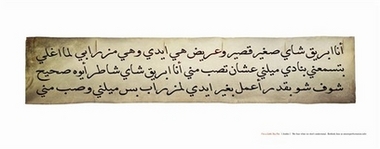 أنا ابريق شاي صغير قصير وعريض هي ايدي وهي مزرابي لما اغلي
بتسمعني بنادي ميلني عشان تصب مني أنا ابريق شاي شاطر ايوه صحيح
شوف شو بقدر اعمل بغير ايدي لمزراب بس ميلني وصب مني